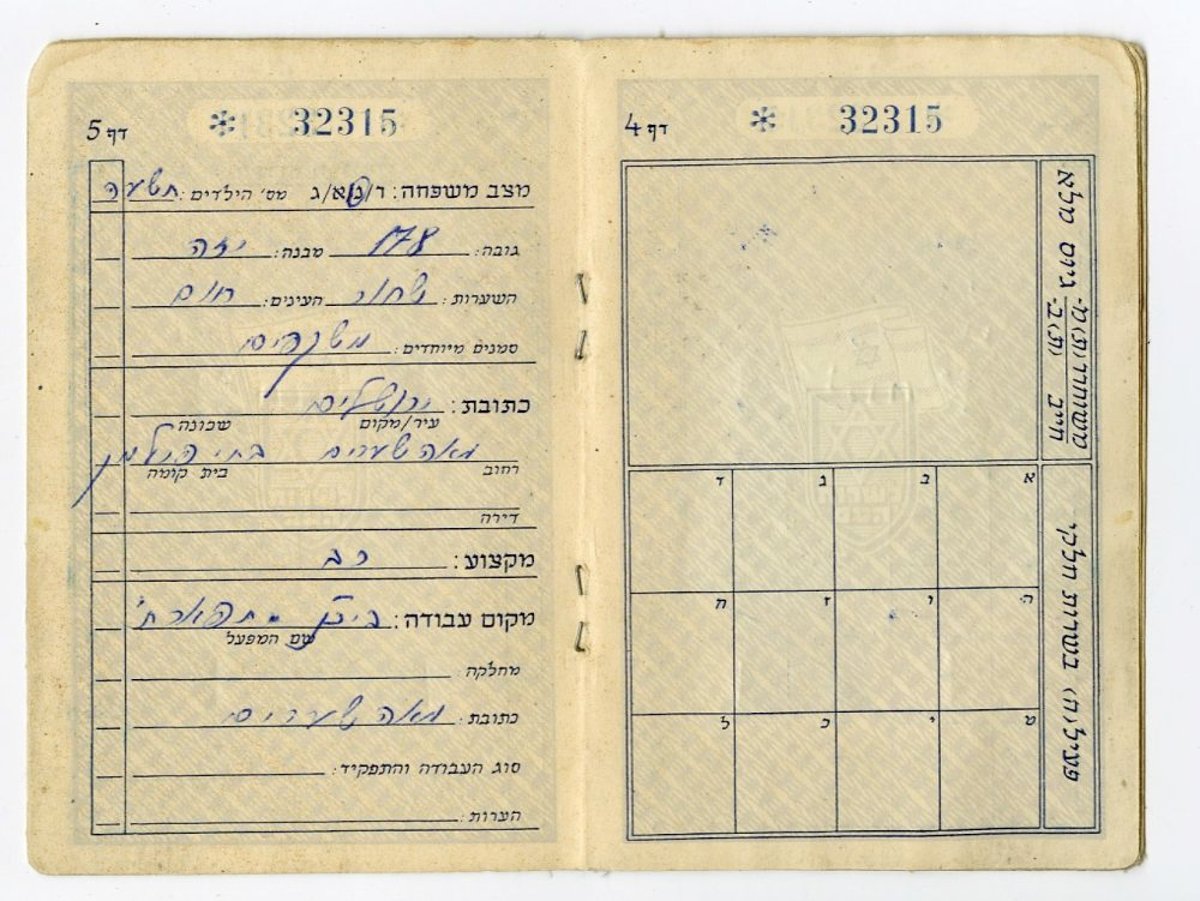 דף 4
* 32315
גיוס מלא
משוחרר(ת) מ-
חייב(ת) ב-
א ב ג ד
ה ו ז ח
ט י כ ל
פעילות(ה) בשרות חלקי
דף 5
* 32315
מצב משפחה: ר/נ/א/ג מס' הילדים: תשעה
גובה: 178 מבנה: יפה
השערות: שחור העינים: חום
סמנים מיוחדים: משקפים
כתובת: ירושלים
עיר/מקום שכונה
מאה שערים בתי
רחוב בית קומה
דירה
מקצוע: רב
מקום עבודה:
שם המפעל
מחלקה:
כתובת: מאה שערים
סוג העבודה והתפקיד:
הערות: